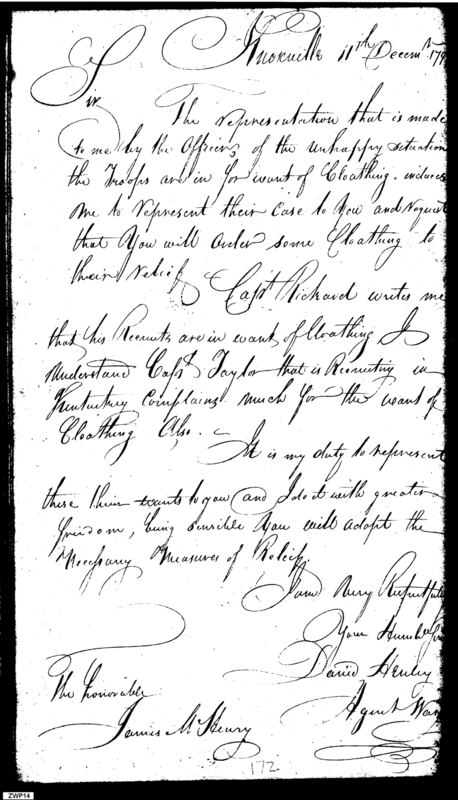 Knoxville 11th Decemr 179
Sir
The representation that is made
to me by the Officers of the unhappy situation
the Troops are in for want of Cloathing. induces
me to represent their Case to You and request
that You will order some Cloathing to
their relief
Capt Rickard writes me
that his Recruits are in want of Cloathing I
understand Capt Taylor that is Recruiting in
Kentuckey Complains much for the want of
Cloathing Also. –
It is my duty to represent
these their wants to you and I do it with greater
freedom, being sensible You will adopt the
Necessary Measures of Relief.
I am Very Respectfully
Your Humble Ser
David Henley
Agent War
The honorable
James McHenry
172
ZWP14